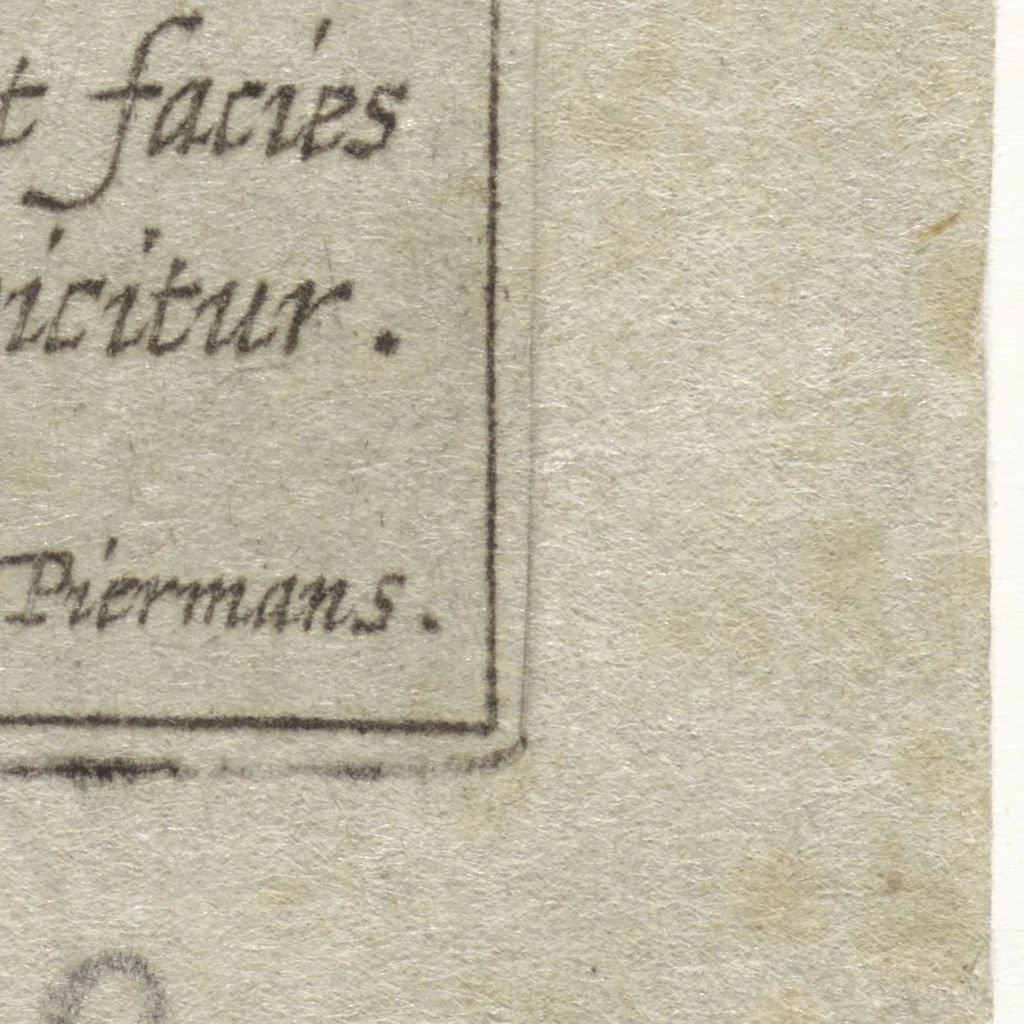 t facies
icitur.
Piermans.